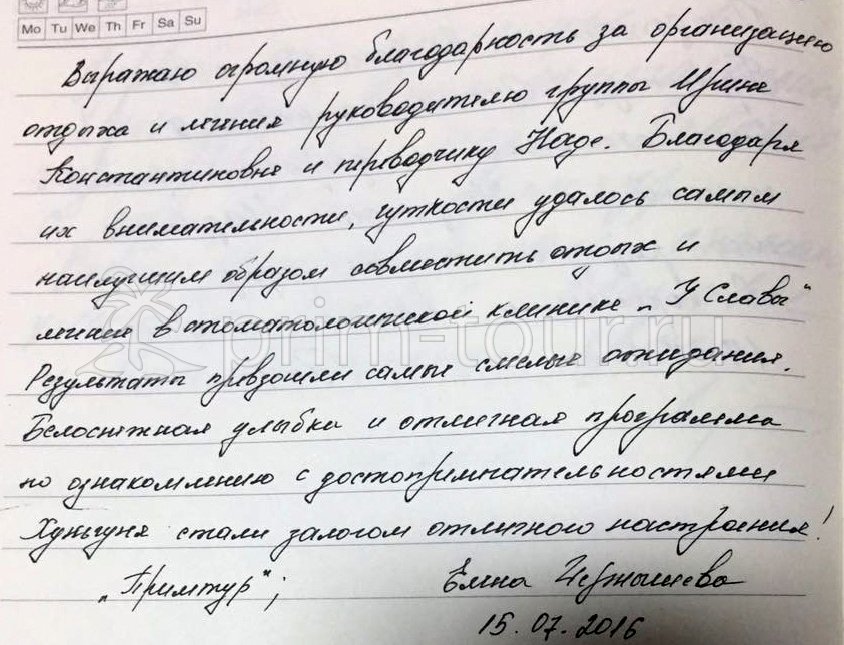 Mo Tu We Th Fr Sa Su
Выражаю огромную благодарность за организацию
отдыха и лечения руководителю группы Ирине
Константиновне и переводчику Наде. Благодаря
их внимательности, чуткости удалось самым
наилучшим образом совместить отдых и
лечение в стоматологической клинике „У Славы"
Результаты превзошли самые смелые ожидания.
Белоснежная улыбка и отличная программа
по ознакомлению с достопримечательностями
Хуньчуня стали залогом отличного настроения!
„Примтур";
Елена Чернышева
15.07.2016
prim-tour.ru